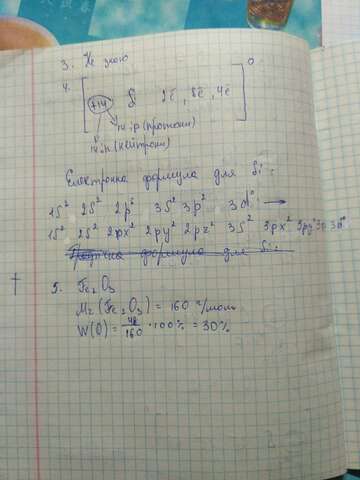 3. Не знаю
4. +14 Si 2ē, 8ē, 4ē 0
14 p (протони)
14 n (нейтрони)
Електронна формула для Si:
1S² 2S² 2p⁶ 3S² 3p² 3d⁰ →
1S² 2S² 2px² 2py² 2pz² 3S² 3px²
формула для Si:
5. Fe₂O₃
Mr(Fe₂O₃) = 160 г/моль
W(O) = 48/160 · 100% = 30%